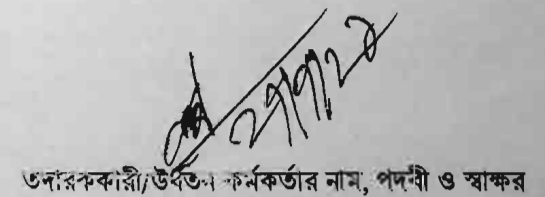 তদারককারী/উর্ধতন কর্মকর্তার নাম, পদবী ও স্বাক্ষর